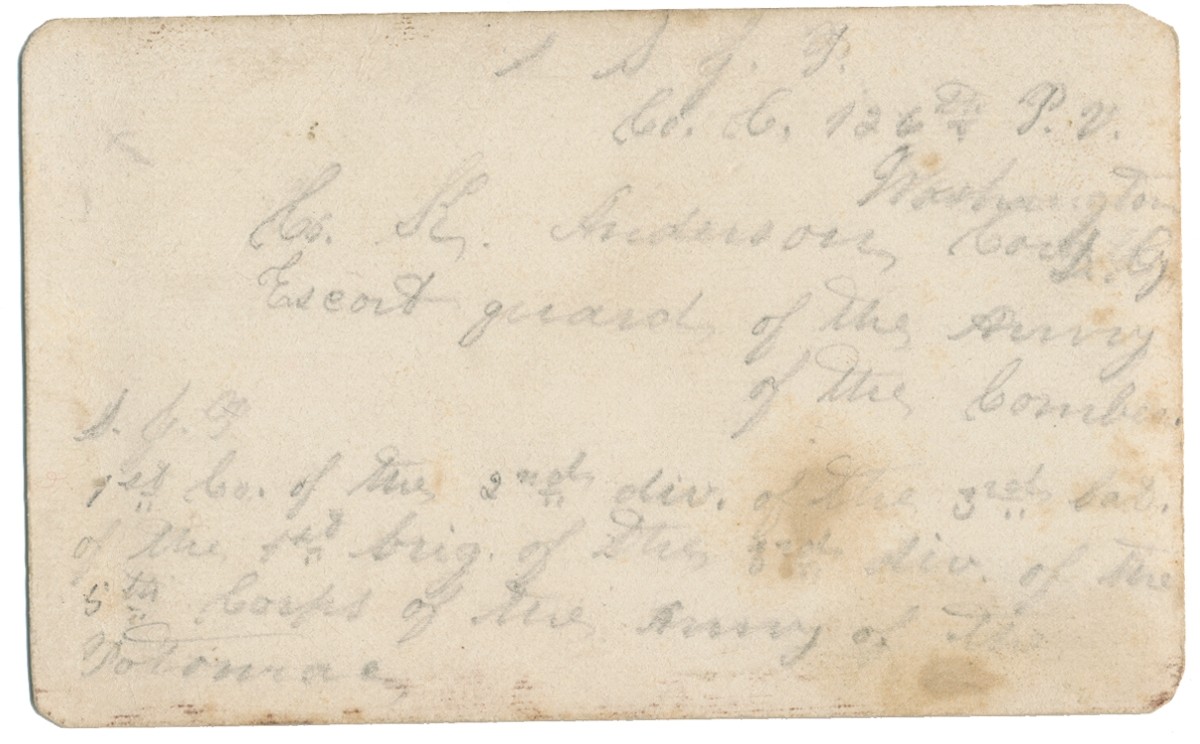 S. J. P.
Co. C. 126th P. V.
Washington
Co. K. Anderson Corp D. C.
Escort guard of the Army
of the Comber.
S. J. P.
1st Co. of the 2nd div. of the 3rd bat.
of the 1st brig. of the 3rd div. of the
5th Corps of the Army of the
Potomac